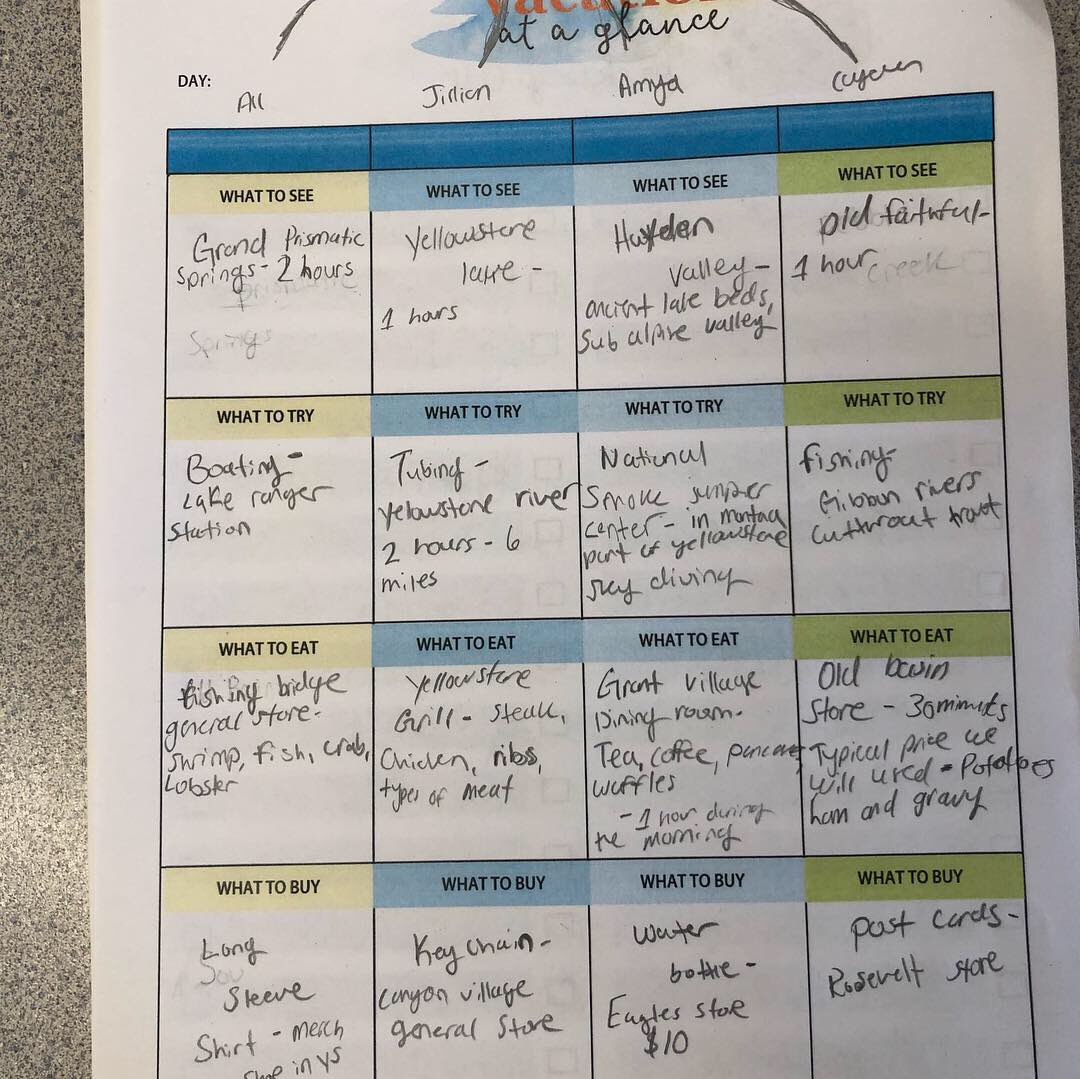 at a glance
DAY:
All
Jillian
Amya
WHAT TO SEE
WHAT TO SEE
WHAT TO SEE
WHAT TO SEE
Grand Prismatic
Springs - 2 hours
Springs
Yellowstone
lake -
1 hours
Hayden
Valley -
ancient lake beds,
Sub alpine valley
old faithful -
1 hour
creek
WHAT TO TRY
WHAT TO TRY
WHAT TO TRY
WHAT TO TRY
Boating -
Lake ranger
Station
Tubing -
yellowstone river
2 hours - 6
miles
National
Smoke jumper
center - in montana
part of yellowstone
sky diving
fishing -
Gibbon rivers
Cutthroat trout
WHAT TO EAT
WHAT TO EAT
WHAT TO EAT
WHAT TO EAT
fishing bridge
general store -
shrimp, fish, crab,
Lobster
Yellowstone
Grill - steak,
Chicken, ribs,
types of meat
Grant village
Dining room -
Tea, coffee, pancakes
waffles
- 1 hour during
the morning
Old basin
Store - 30 minuts
Typical price we
will used - Potatoes
ham and gravy
WHAT TO BUY
WHAT TO BUY
WHAT TO BUY
WHAT TO BUY
Long
Sleeve
Shirt - merch
in ys
Key chain -
canyon village
general Store
water
bottle -
Eagles store
$10
post cards -
Rosevelt store